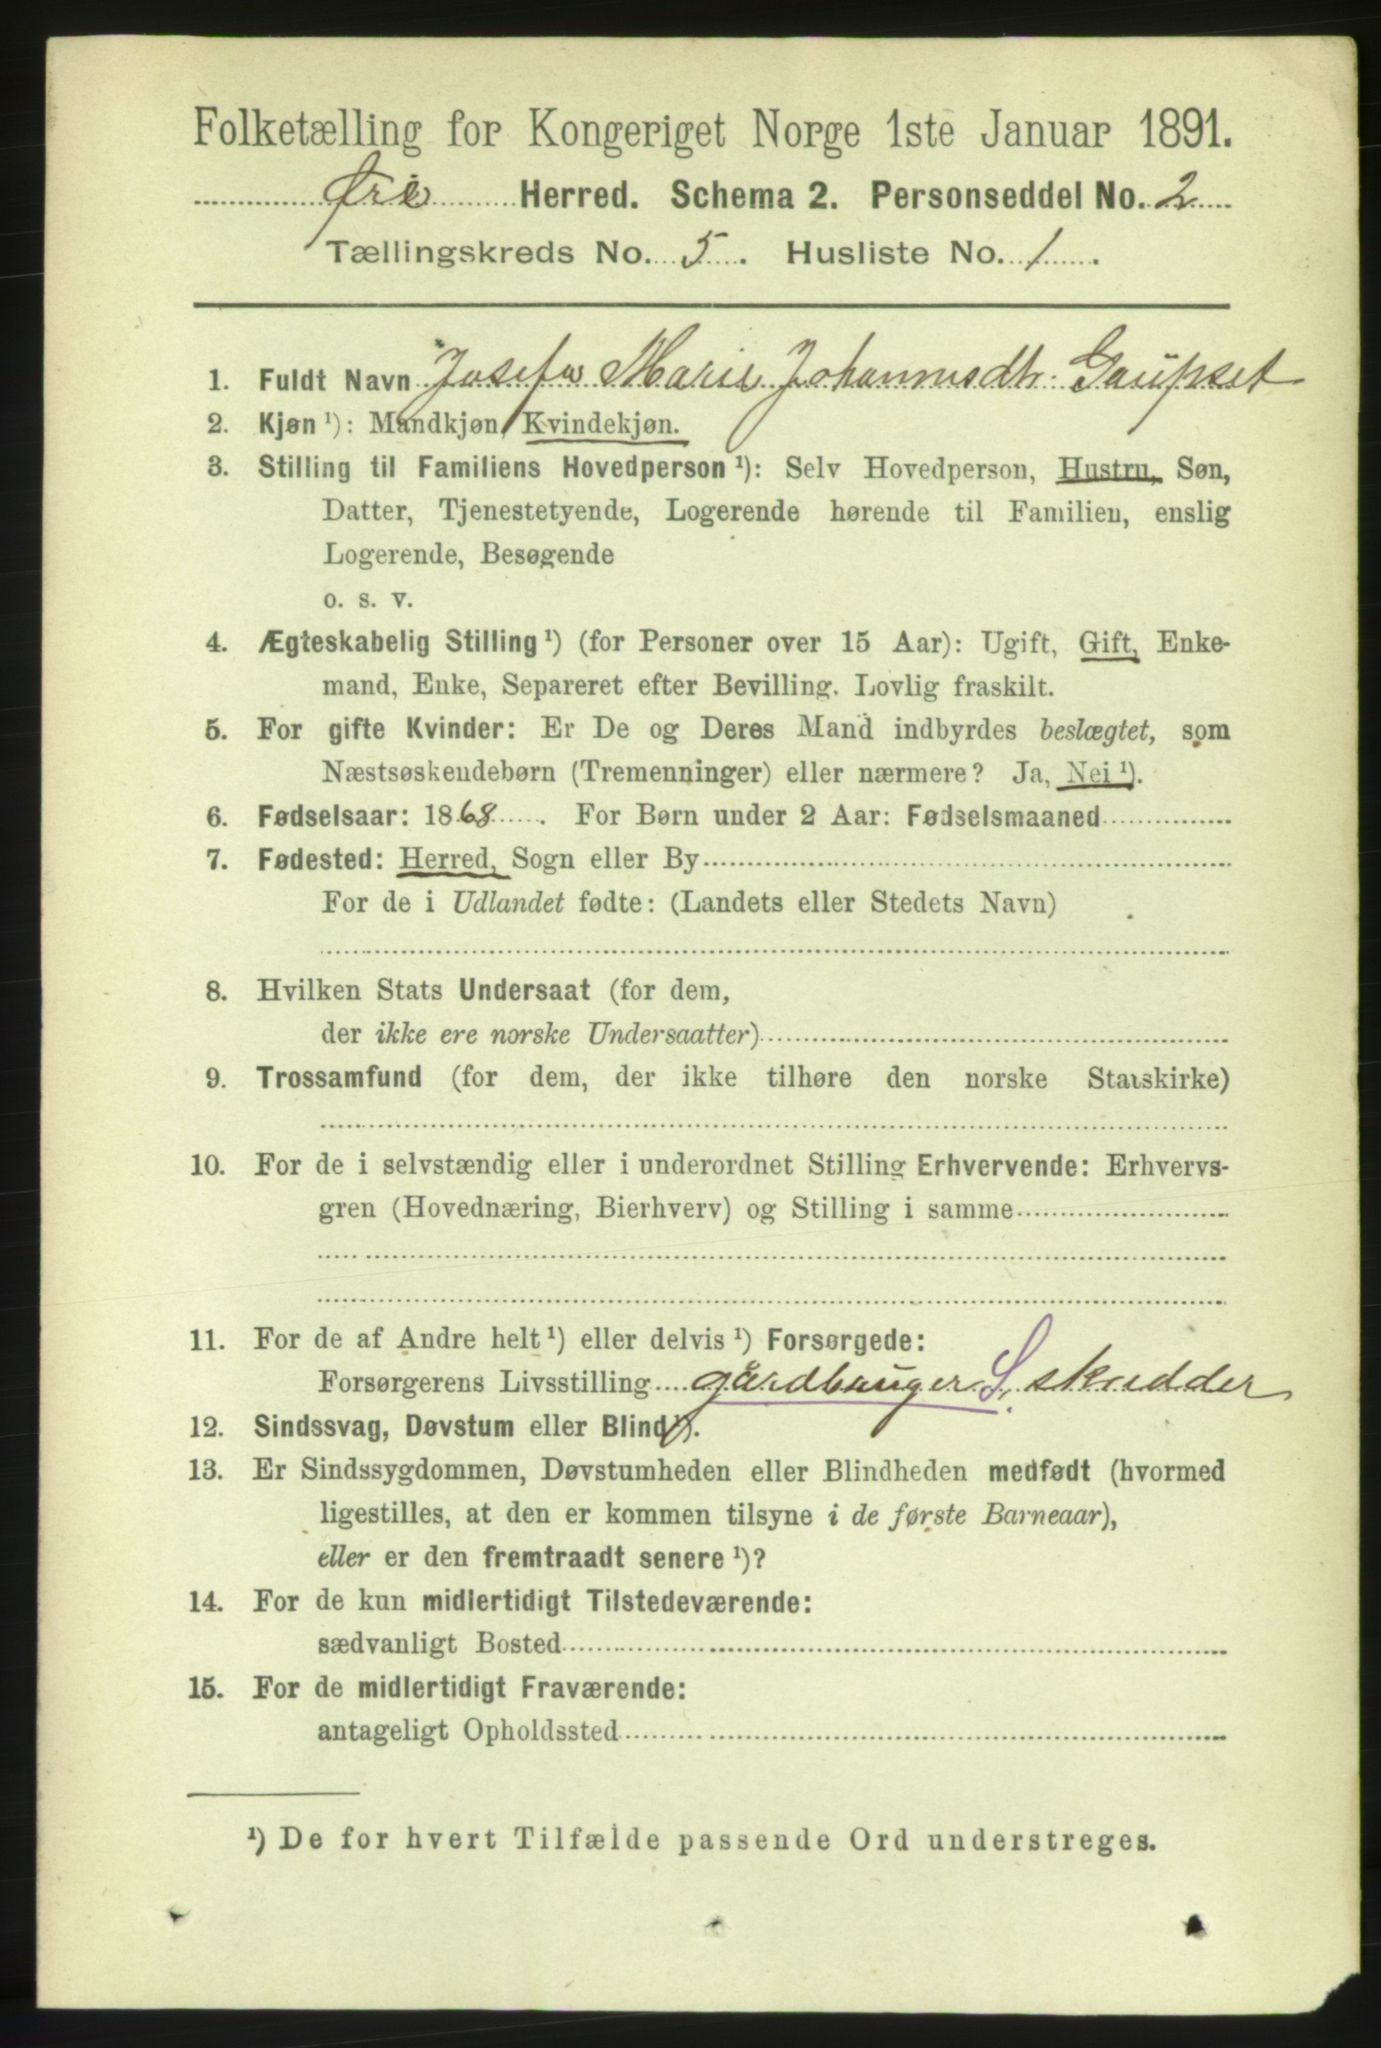 Folketælling for Kongeriget Norge 1ste Januar 1891.
Øre Herred. Schema 2. Personseddel No. 2
Tællingskreds No. 5. Husliste No. 1.
1. Fuldt Navn Josefa Marie Johannesdtr. Gaŭpset
2. Kjøn ¹): Mandkjøn, Kvindekjøn.
3. Stilling til Familiens Hovedperson ¹): Selv Hovedperson, Hustru, Søn,
Datter, Tjenestetyende, Logerende hørende til Familien, enslig
Logerende, Besøgende
o. s. v.
4. Ægteskabelig Stilling ¹) (for Personer over 15 Aar): Ugift, Gift, Enke-
mand, Enke, Separeret efter Bevilling. Lovlig fraskilt.
5. For gifte Kvinder: Er De og Deres Mand indbyrdes beslægtet, som
Næstsøskendebørn (Tremenninger) eller nærmere? Ja, Nei ¹).
6. Fødselsaar: 1868. For Børn under 2 Aar: Fødselsmaaned
7. Fødested: Herred, Sogn eller By
For de i Udlandet fødte: (Landets eller Stedets Navn)
8. Hvilken Stats Undersaat (for dem,
der ikke ere norske Undersaatter)
9. Trossamfund (for dem, der ikke tilhøre den norske Statskirke)
10. For de i selvstændig eller i underordnet Stilling Erhvervende: Erhvervs-
gren (Hovednæring, Bierhverv) og Stilling i samme
11. For de af Andre helt ¹) eller delvis ¹) Forsørgede:
Forsørgerens Livsstilling gårdbruger S. skredder
12. Sindssvag, Døvstum eller Blind ¹).
13. Er Sindssygdommen, Døvstumheden eller Blindheden medfødt (hvormed
ligestilles, at den er kommen tilsyne i de første Barneaar),
eller er den fremtraadt senere ¹)?
14. For de kun midlertidigt Tilstedeværende:
sædvanligt Bosted
15. For de midlertidigt Fraværende:
antageligt Opholdssted
¹) De for hvert Tilfælde passende Ord understreges.